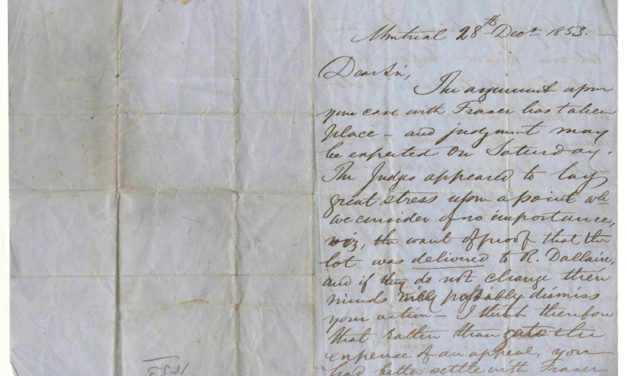 Montreal 28th Decr 1853.
Dear Sir,
The argument upon
your case with Fraser has taken
place - and judgment may
be expected on Saturday.
The Judges appeared to lay
great stress upon a point wh
we consider of no importance,
viz, the want of proof that the
lot was delivered to R. Dallaire,
and if they do not change their
minds will probably dismiss
your action - I think therefore
that rather than go to the
expense of an appeal, you
had better settle with Fraser
1853